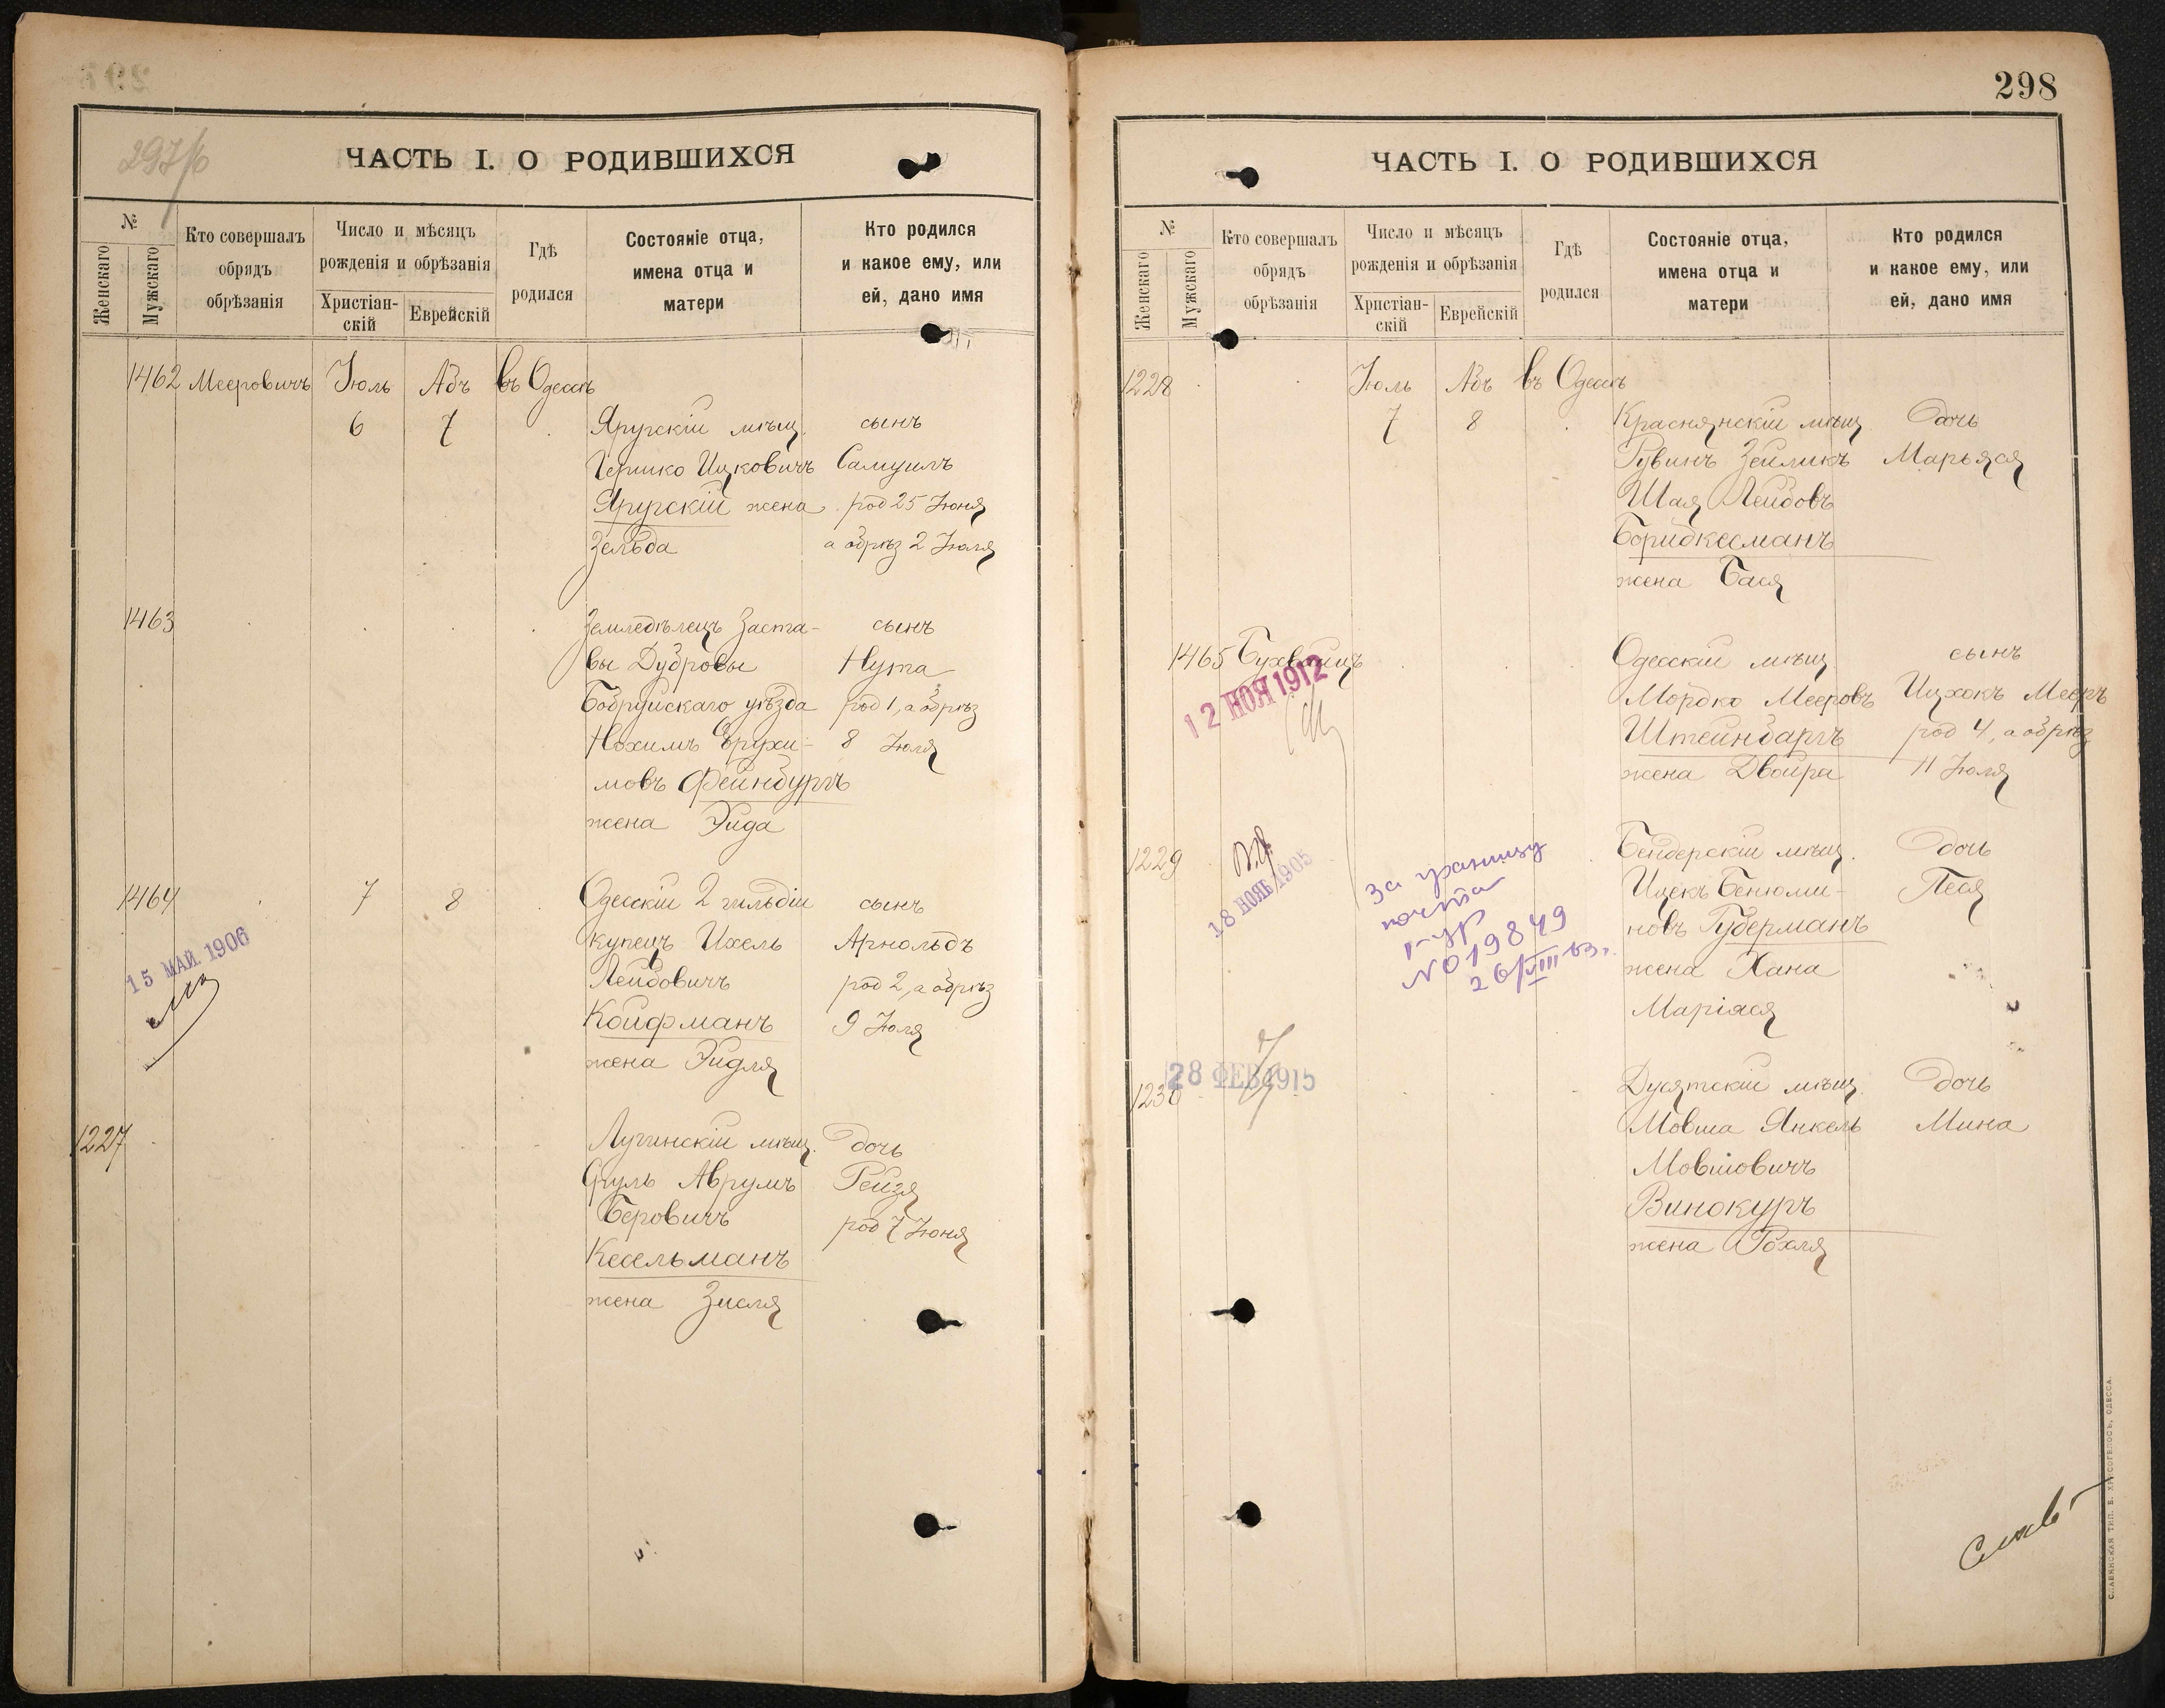 297/0
ЧАСТЬ I. О РОДИВШИХСЯ
№
Женскаго
Мужскаго
Кто совершалъ
обрядъ
обрѣзанія
Число и мѣсяцъ
рожденія и обрѣзанія
Христіан-
скій
Еврейскій
Гдѣ
родился
Состояніе отца,
имена отца и
матери
Кто родился
и какое ему, или
ей, дано имя
1462 Мееровичъ Іюль Абъ въ Одессѣ
6 7 Яругскій мѣщ. сынъ
Гершко Ицковичъ Самуилъ
Яругскій жена род 25 Іюня
Зельда а обрѣз 2 Іюля
1463 Земледѣлецъ Заста- сынъ
вы Дубровы Нута
Бобруйскаго уѣзда род 1, а обрѣз
Нохимъ Ерухи- 8 Іюля
мовъ Фейнбургъ
жена Эйда
1464 7 8 Одесскій 2 гильдіи сынъ
купецъ Ихель Арнольдъ
Лейбовичъ род 2, а обрѣз
Койфманъ 9 Іюля
жена Эйдля
15 МАЙ 1906
1227 Лугинскій мѣщ. дочь
Сруль Аврумъ Рейзя
Беровичъ род 7 Іюня
Кесельманъ
жена Зисля
298
ЧАСТЬ I. О РОДИВШИХСЯ
№
Женскаго
Мужскаго
Кто совершалъ
обрядъ
обрѣзанія
Число и мѣсяцъ
рожденія и обрѣзанія
Христіан-
скій
Еврейскій
Гдѣ
родился
Состояніе отца,
имена отца и
матери
Кто родился
и какое ему, или
ей, дано имя
1228 Іюль Абъ въ Одессѣ
7 8 Краснянскій мѣщ дочь
Рувинъ Зейликъ Марьяся
Шая Лейбовъ
жена Бася
1465 Одесскій мѣщ сынъ
12 НОЯ 1912
Мордко Мееровъ Ицхокъ Мееръ
Штейнбаргъ род 4, а обрѣз
жена Двойра 11 Іюля
1229 Бендерскій мѣщ. дочь
18 НОЯБ 1905
Ицекъ Бенюми- Песя
новъ Губерманъ
жена Хана
Маріася
За границу
почта
№ 019849
26/VIII 63 г.
1230 Дусятскій мѣщ дочь
28 ФЕВ 1915
Мовша Янкель Мина
Мовшовичъ
Винокуръ
жена Рохля
СЛАВЯНСКАЯ ТИП. Е. ХРИСОГЕЛОСЪ, ОДЕССА.